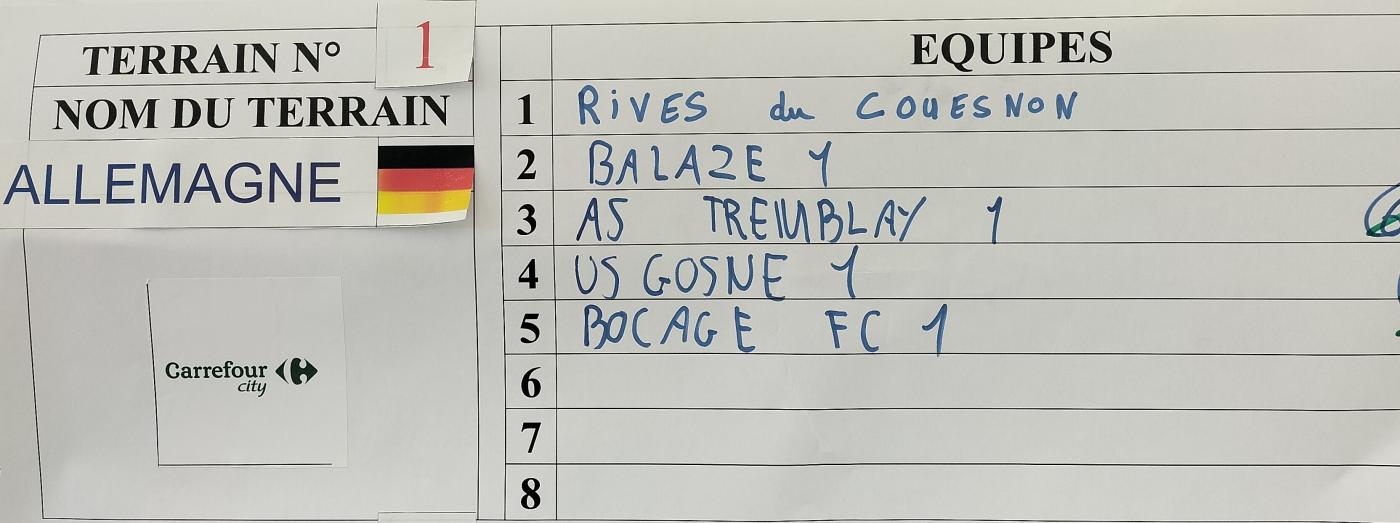 TERRAIN N° 1
NOM DU TERRAIN
ALLEMAGNE
Carrefour
city
EQUIPES
1 RiVES du COUESNON
2 BALAZE 1
3 AS TREMBLAY 1
4 US GOSNE 1
5 BOCAGE FC 1
6
7
8